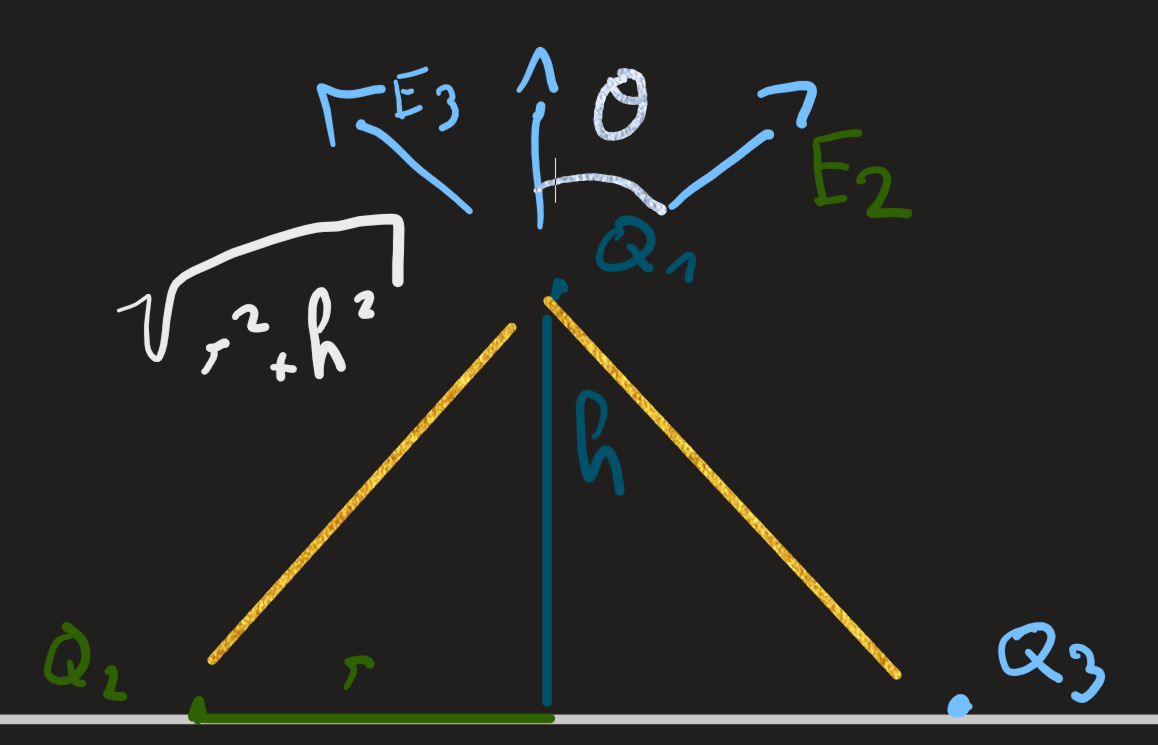 E3
θ
E2
Q1
√r²+h²
h
Q2
r
Q3